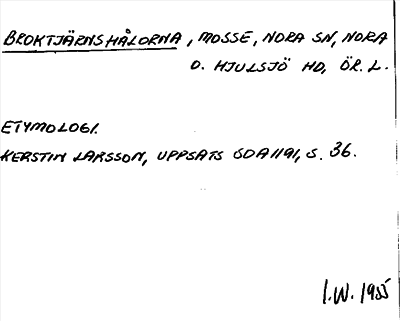 BROKTJÄRNSHÅLORNA, MOSSE, NORA SN, NORA
O. HJULSJÖ HD, ÖR. L.
ETYMOLOGI.
KERSTIN LARSSON, UPPSATS SDA1191, S. 36.
I.W. 1955